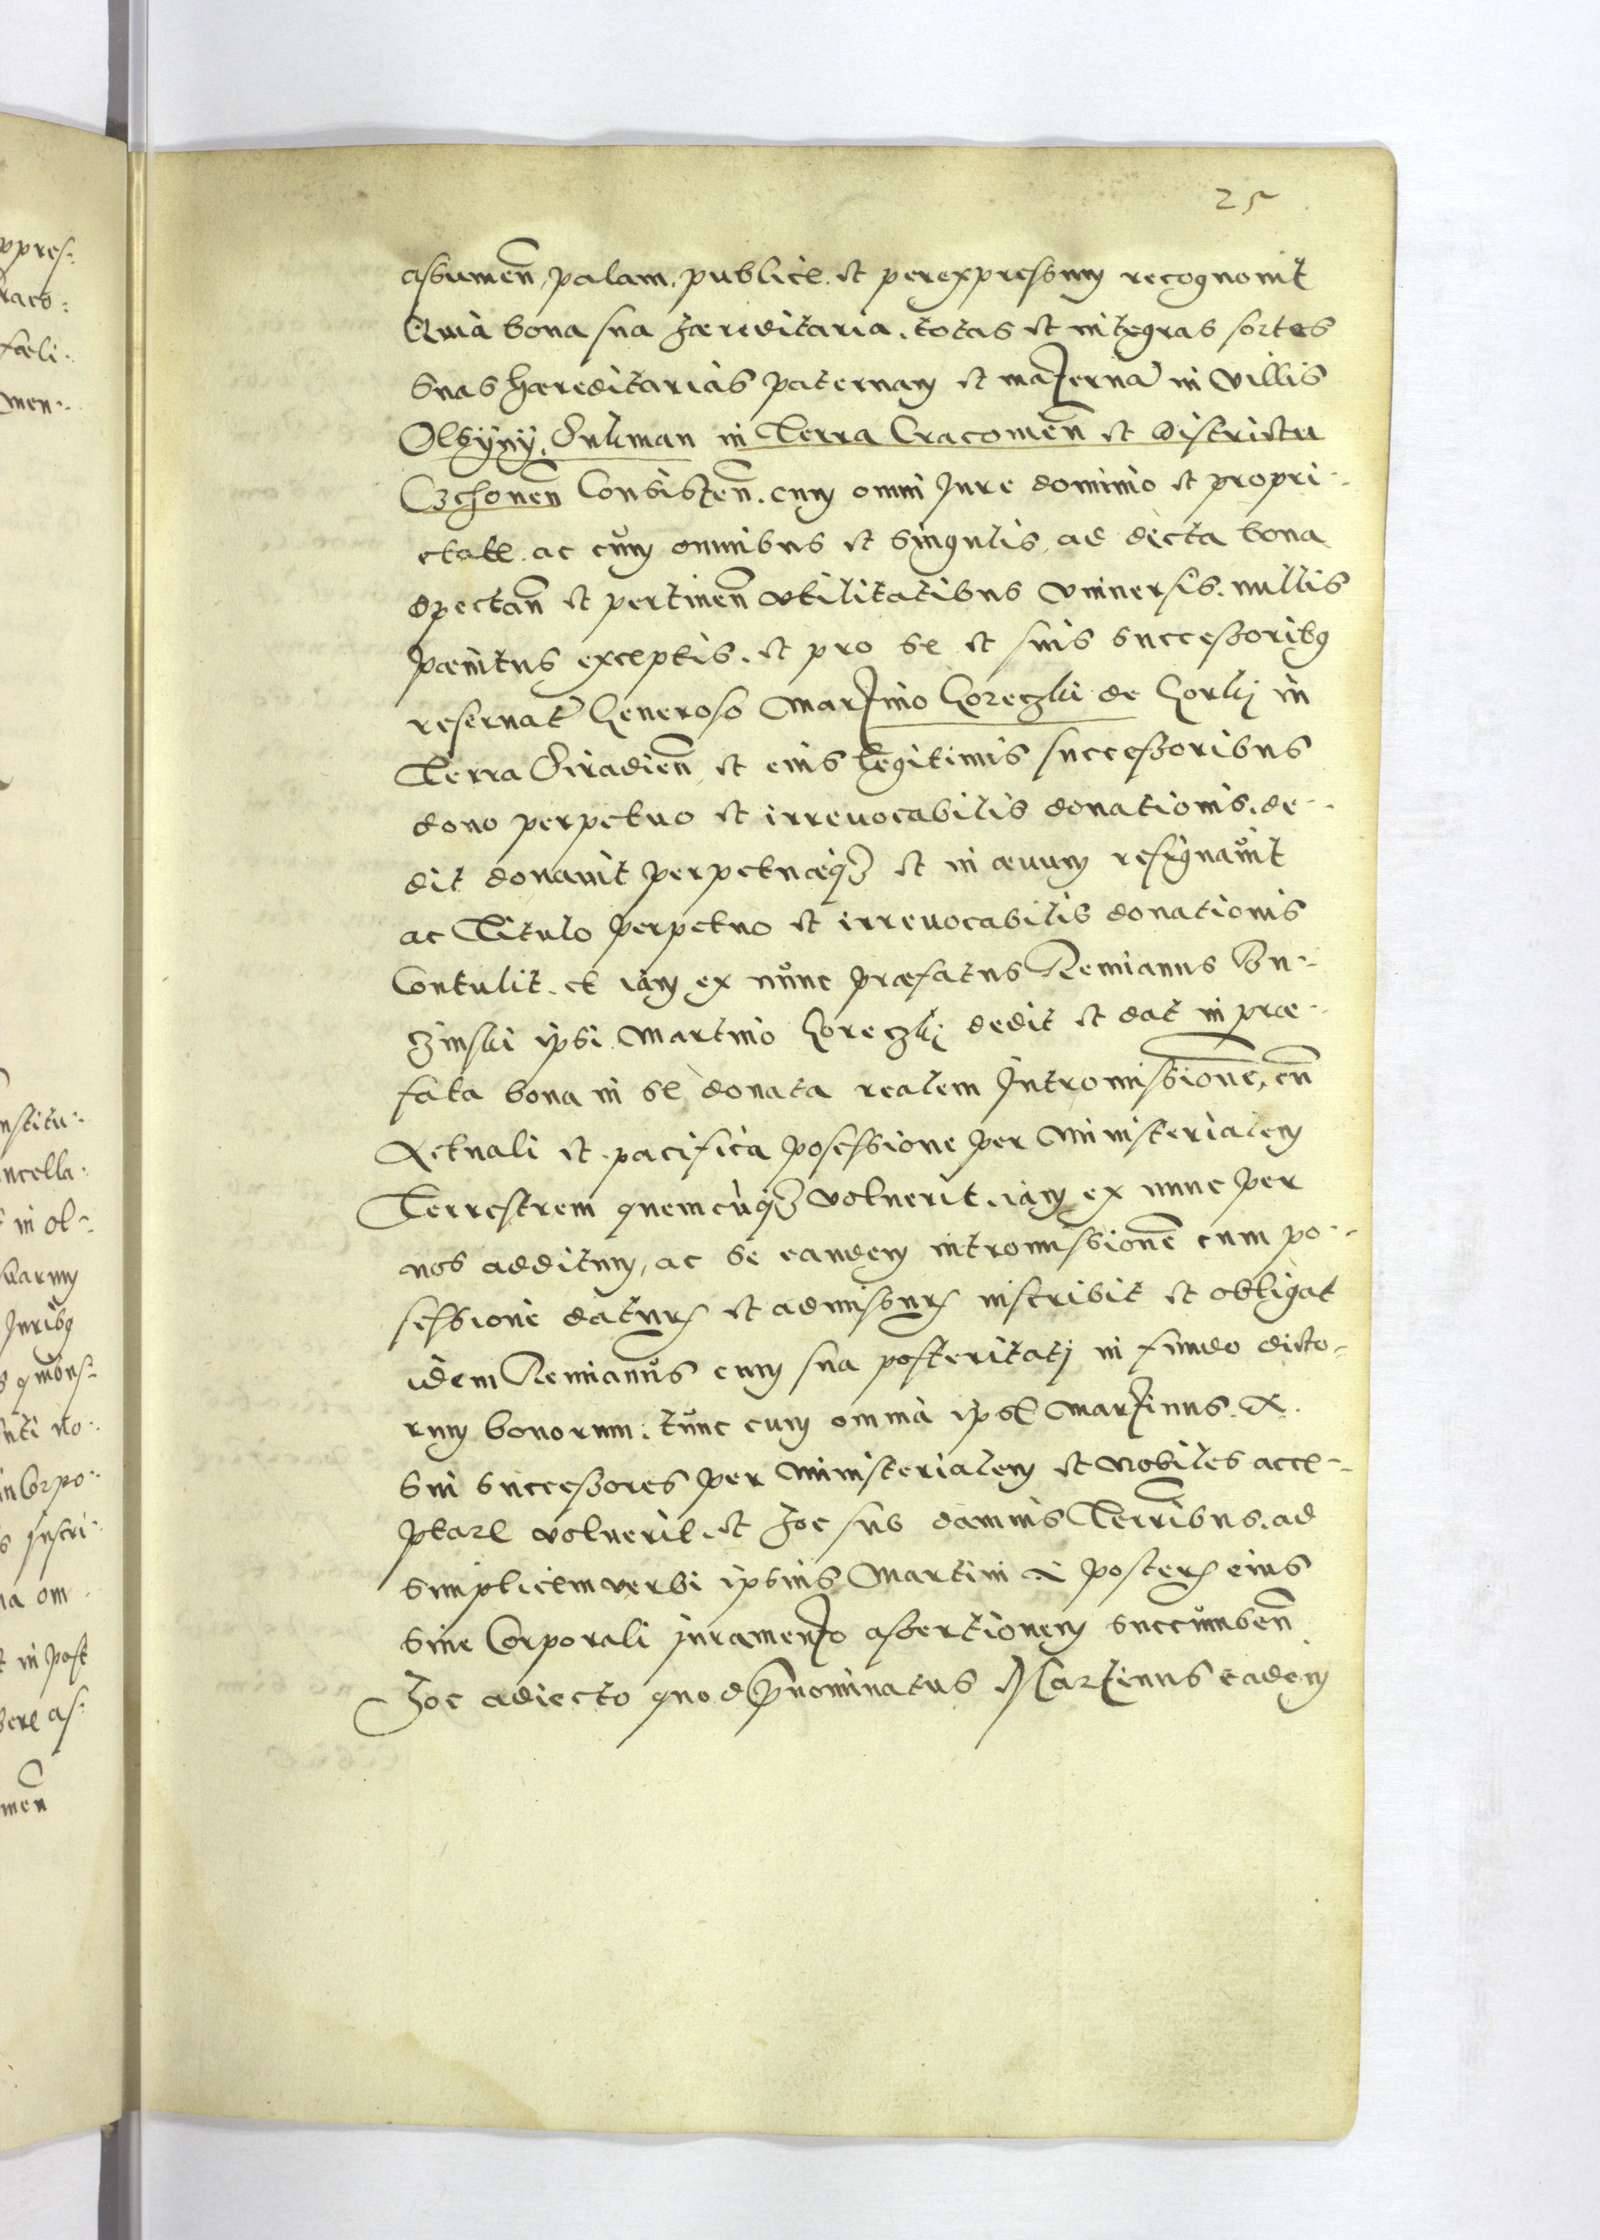 25
assumen̄, palam, publice et perexpressum recognovit
Quia bona sua haereditaria, totas et integras sortes
suas haereditarias paternam et maternā in villis
Olsyny, Sulman in Terra Cracovien̄ et Districtu
Czchoven̄ Consisten̄. cum omni Jure dominio et propri-
etate. ac cum omnibus et singulis, ad dicta bona
spectan̄ et pertinen̄ utilitatibus universis. nullis
paenitus exceptis. et pro se et suis successoribq
reservat̄ Generoso Martino Goreczki de Gorki in
Terra Siradien̄ et eius legitimis successoribus
dono perpetuo et irrevocabilis donationis. de-
dit donavit perpetuaeq3 et in aevum resignavit
ac Titulo perpetuo et irrevocabilis donationis
Contulit. et iam ex nunc praefatus Remianus Bu-
zinski ipsi Martino Goreczkj dedit et dat in prae-
fata bona in se donata realem Intromissionē, cū
Actuali et pacifica possessione per Ministerialem
Terrestrem quemcuq3 voluerit. iam ex nunc per
nos additum, ac se eandem intromissionē cum po-
sessione daturꝝ et admissurꝝ inscribit et obligat
idem Remianus cum sua posteritatj in fundo dicto-
rum bonorum: tunc cum omnia ipse Martinus &
sui successores per Ministerialem et Nobiles acce-
ptare voluerit. et hoc sub damnis Terribus. ad
simplicem verbi ipsius Martini & posterꝝ eius
sine Corporali juramento assertionem succumben̄
Hoc adiecto quod p̄nominatus Martinus eadem